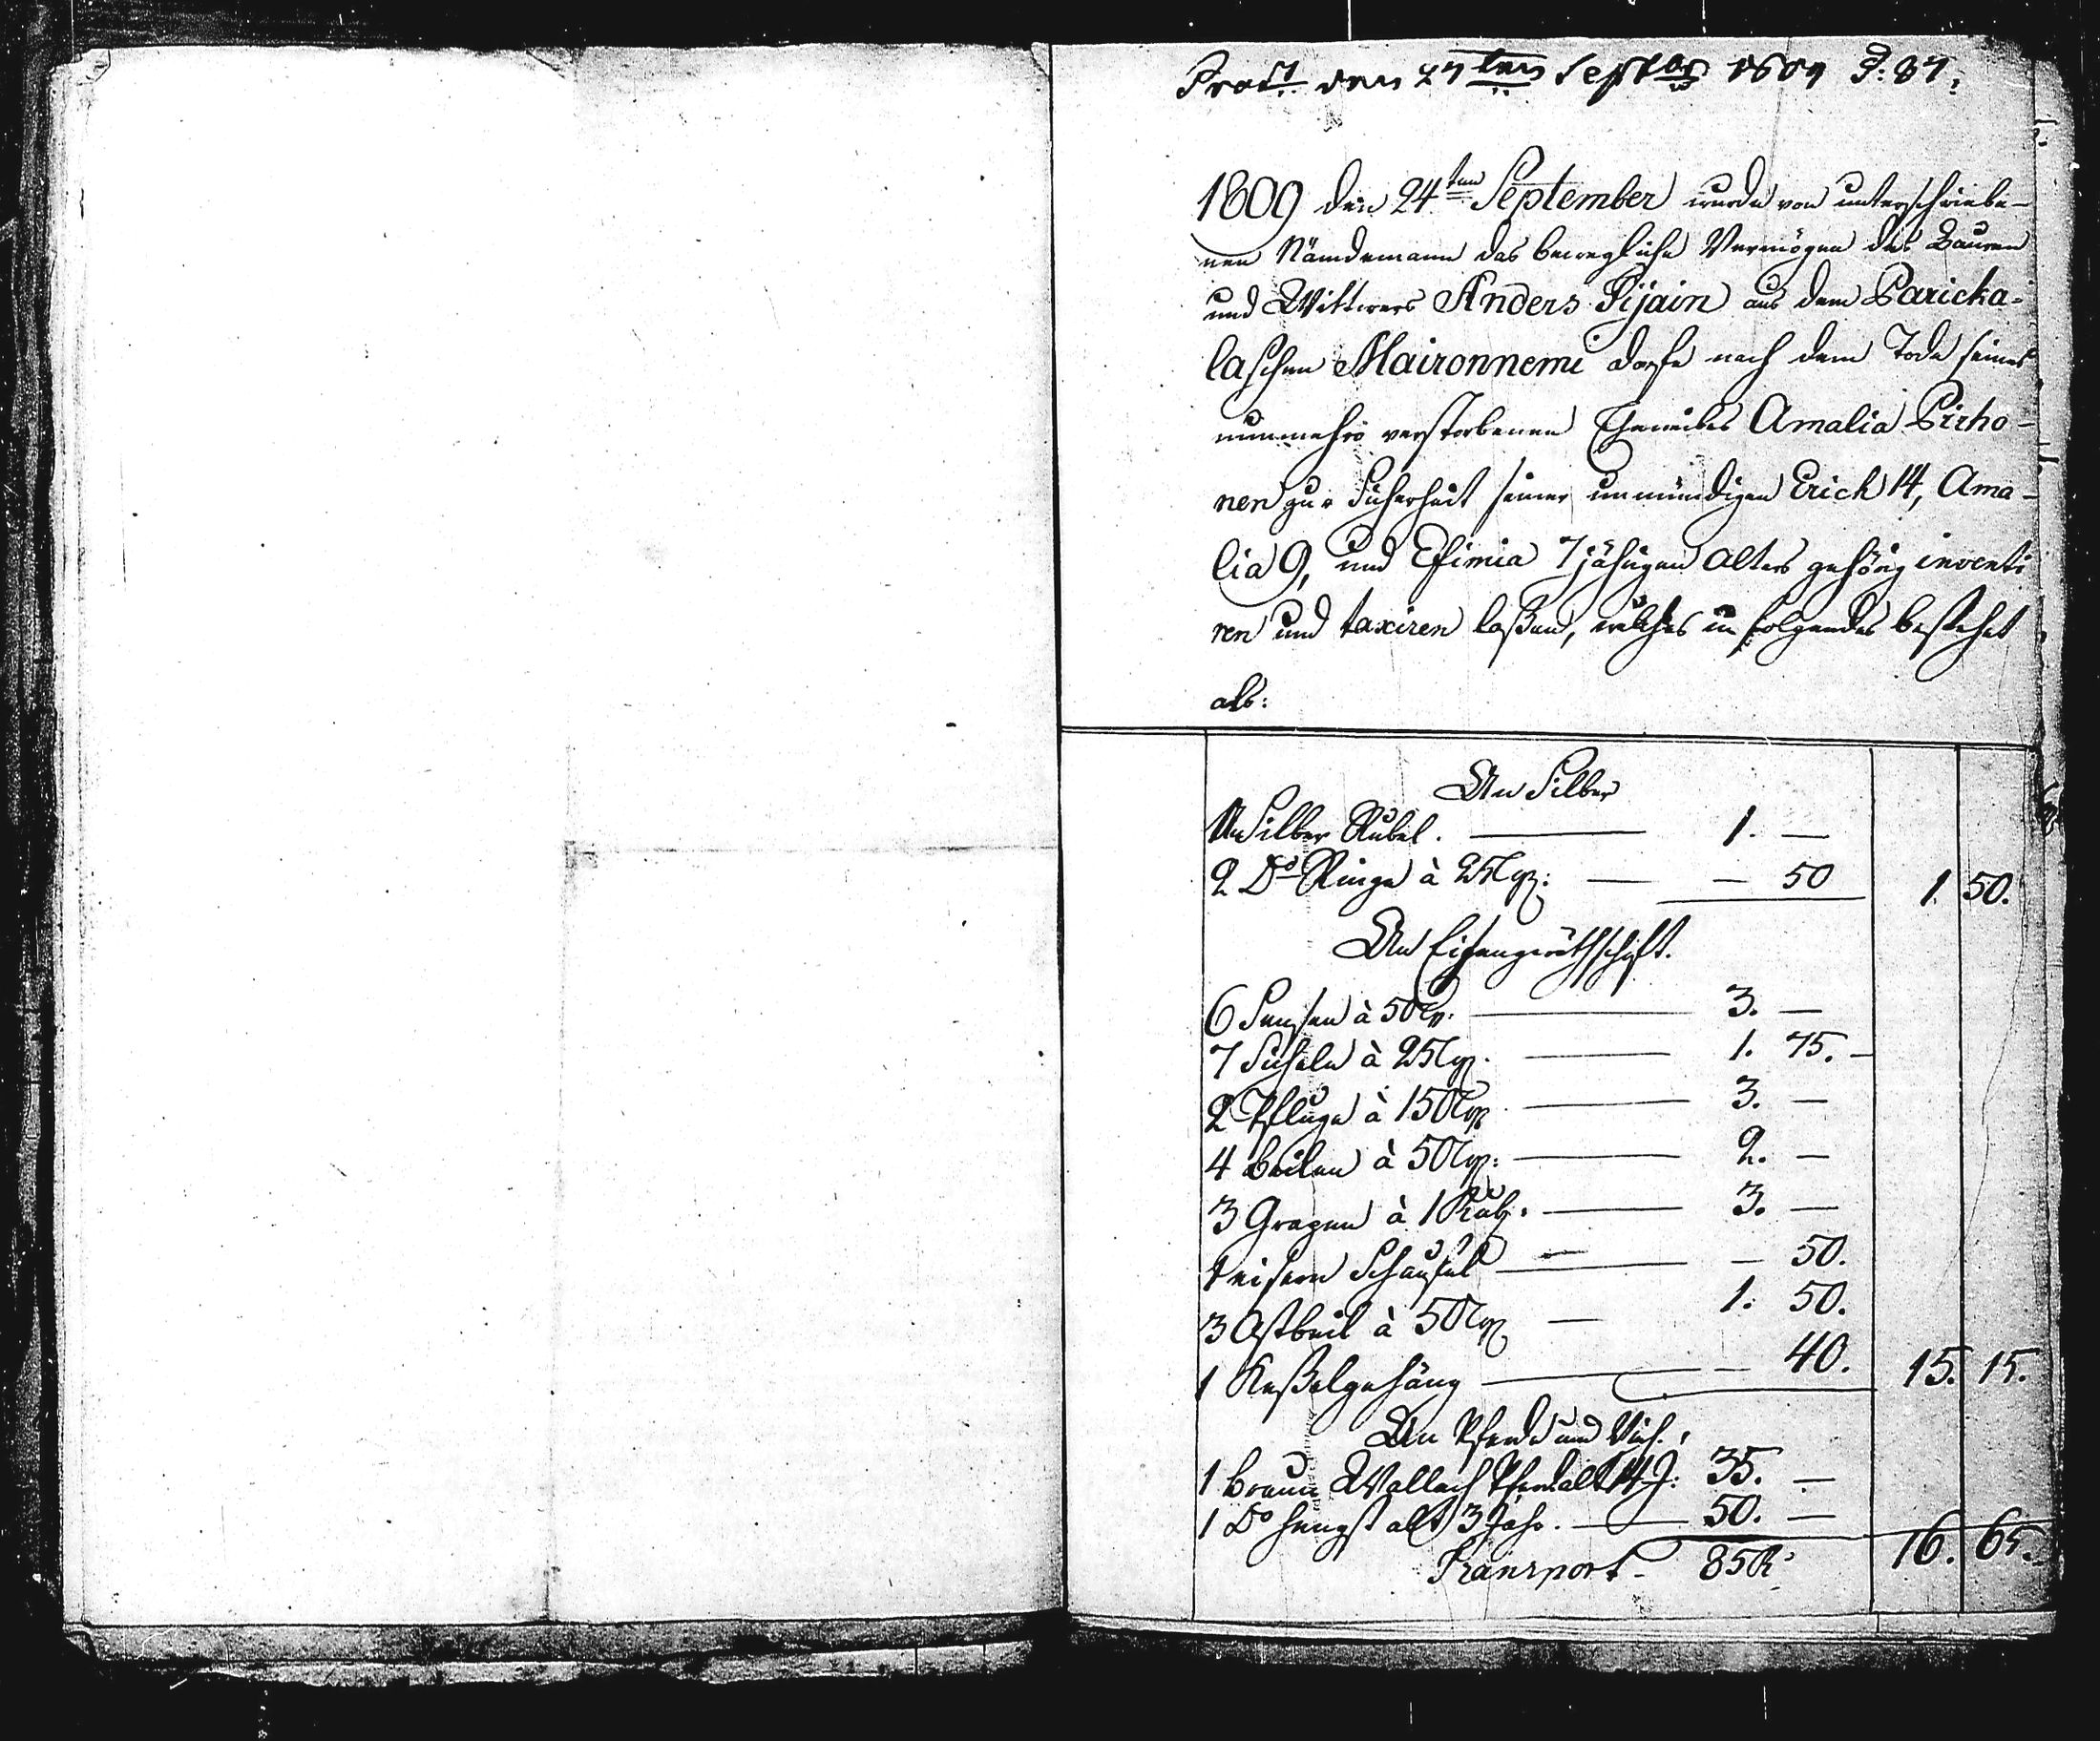 den 27ten Septbr 1809 P: 87.
1809 den 24ten September wurde von unterschriebe-
nen Nämdemann das bewegliche Vermögen des Bauren
und Wittwers Anders Pijain aus dem Paricka-
laschen Maironnemi dorfe nach dem Tode seines
nunmehro verstorbenen Eheweibes Amalia Pirho-
nen zur Sicherheit seiner unmündigen Erich 14, Ama-
lia 9, und Efimia 7 jährigen Alters gehörig inventi
ren und taxiren laßen, welches in folgendes bestehet
als:
An Silber
An Silber Rubel. — 1. —
2 Do Ringe à 25 Cop: — — 50 1. 50.
An Eisengeräthschaft.
6 Sensen à 50 Cop. — 3. —
7 Sicheln à 25 Cop. — 1. 75. —
2 Pfluge à 150 Cop. — 3. —
4 Beilen à 50 Cop: — 2. —
3 Grapen à 1 Rub. — 3. —
1 eisern Schaufel — — 50.
3 Astbeil à 50 Cop — 1. 50.
1 Keßelgehäng — — 40. 15. 15.
An Pferde und Vieh.
1 braun Wallach Pferd alt 14 J. 35. —
1 Do hengst alt 3 Jahr. — 50. —
Transport - 85 R: 16. 65.